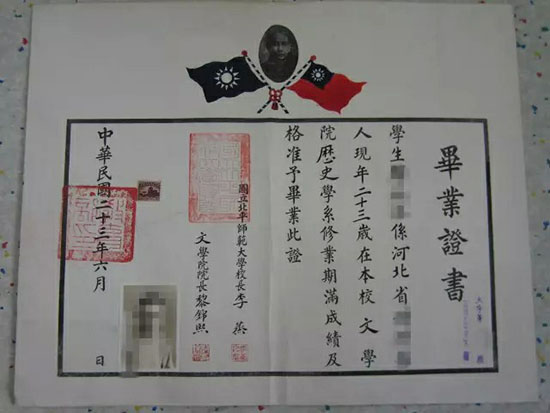 畢業證書
學生
係河北省
人現年二十三歲在本校文學
院歷史學系修業期滿成績及
格准予畢業此證
國立北平師範大學校長李蒸
文學院院長黎錦熙
中華民國二十三年六月
日